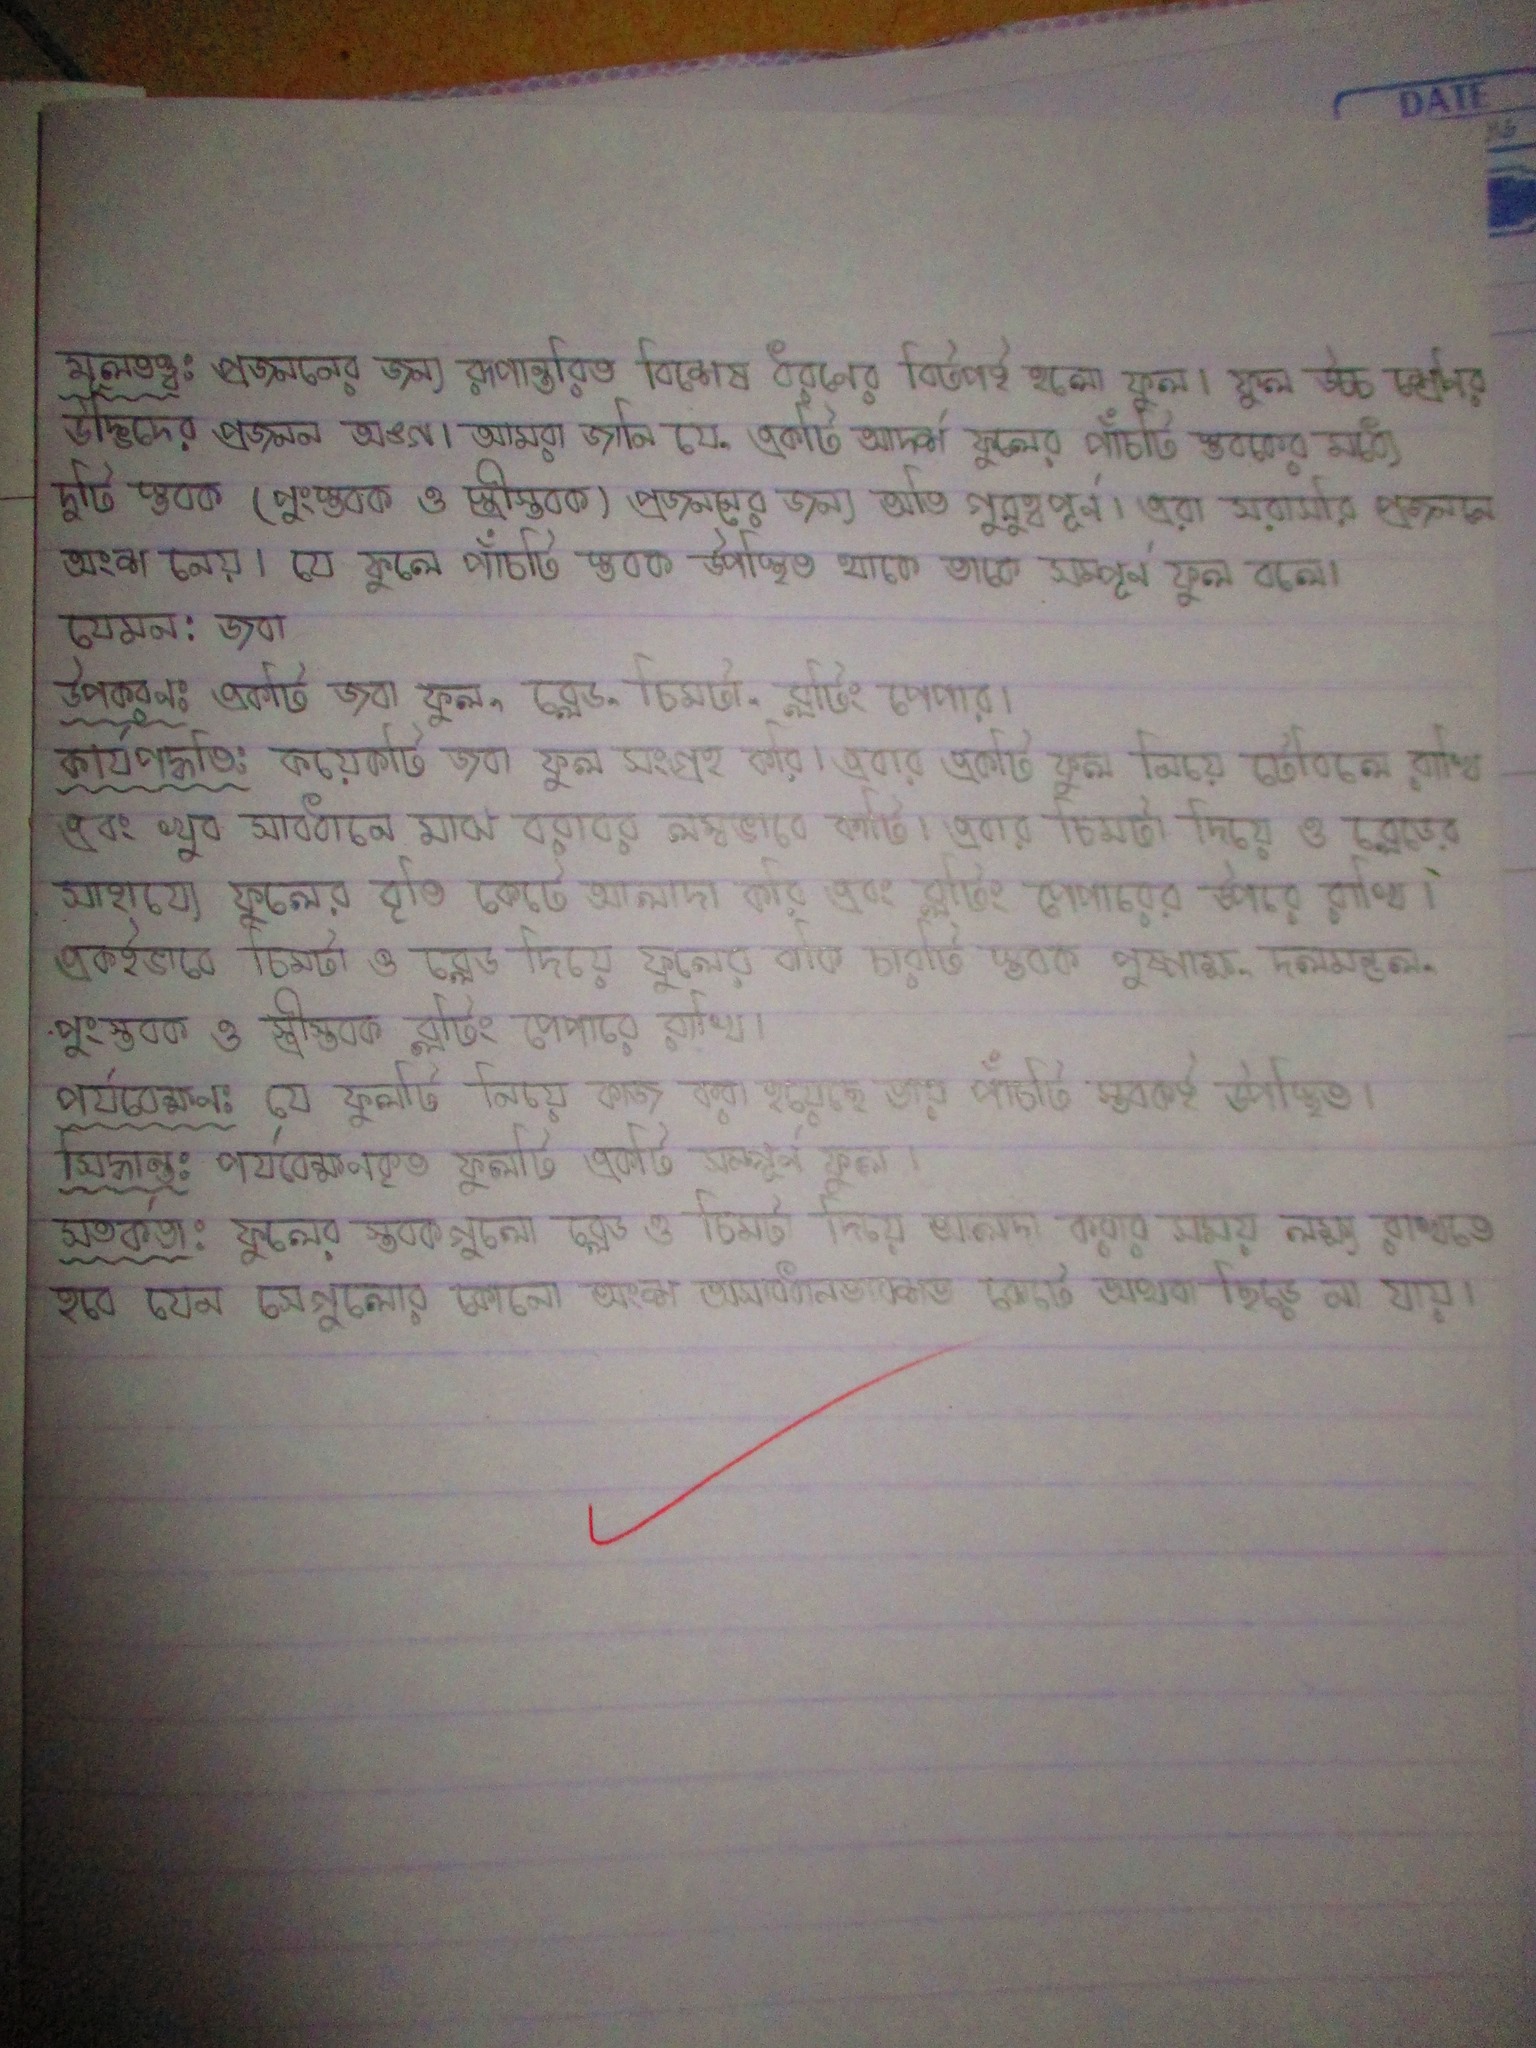 DATE
মূলতত্ত্ব: প্রজননের জন্য রূপান্তরিত বিশেষ ধরণের বিটপই হলো ফুল। ফুল উচ্চ শ্রেণির
উদ্ভিদের প্রজনন অঙ্গ। আমরা জানি যে, একটি আদর্শ ফুলের পাঁচটি স্তবকের মধ্যে
দুটি স্তবক (পুংস্তবক ও স্ত্রীস্তবক) প্রজননের জন্য অতি গুরুত্বপূর্ণ। এরা সরাসরি প্রজননে
অংশ নেয়। যে ফুলে পাঁচটি স্তবক উপস্থিত থাকে তাকে সম্পূর্ণ ফুল বলে।
যেমন: জবা
উপকরণঃ একটি জবা ফুল, ব্লেড, চিমটা, ব্লটিং পেপার।
কার্যপদ্ধতি: কয়েকটি জবা ফুল সংগ্রহ করি। এবার একটি ফুল নিয়ে টেবিলে রাখি
এবং খুব সাবধানে মাঝ বরাবর লম্বভাবে কাটি। এবার চিমটা দিয়ে ও ব্লেডের
সাহায্যে ফুলের বৃতি কেটে আলাদা করি এবং ব্লটিং পেপারের উপরে রাখি।
একইভাবে চিমটা ও ব্লেড দিয়ে ফুলের বাকি চারটি স্তবক পুষ্পাক্ষ, দলমন্ডল,
পুংস্তবক ও স্ত্রীস্তবক ব্লটিং পেপারে রাখি।
পর্যবেক্ষণ: যে ফুলটি নিয়ে কাজ করা হয়েছে তার পাঁচটি স্তবকই উপস্থিত।
সিদ্ধান্ত: পর্যবেক্ষণকৃত ফুলটি একটি সম্পূর্ণ ফুল।
সতর্কতা: ফুলের স্তবকগুলো ব্লেড ও চিমটা দিয়ে আলাদা করার সময় লক্ষ্য রাখতে
হবে যেন সেগুলোর কোনো অংশ কেটে অথবা ছিড়ে না যায়।